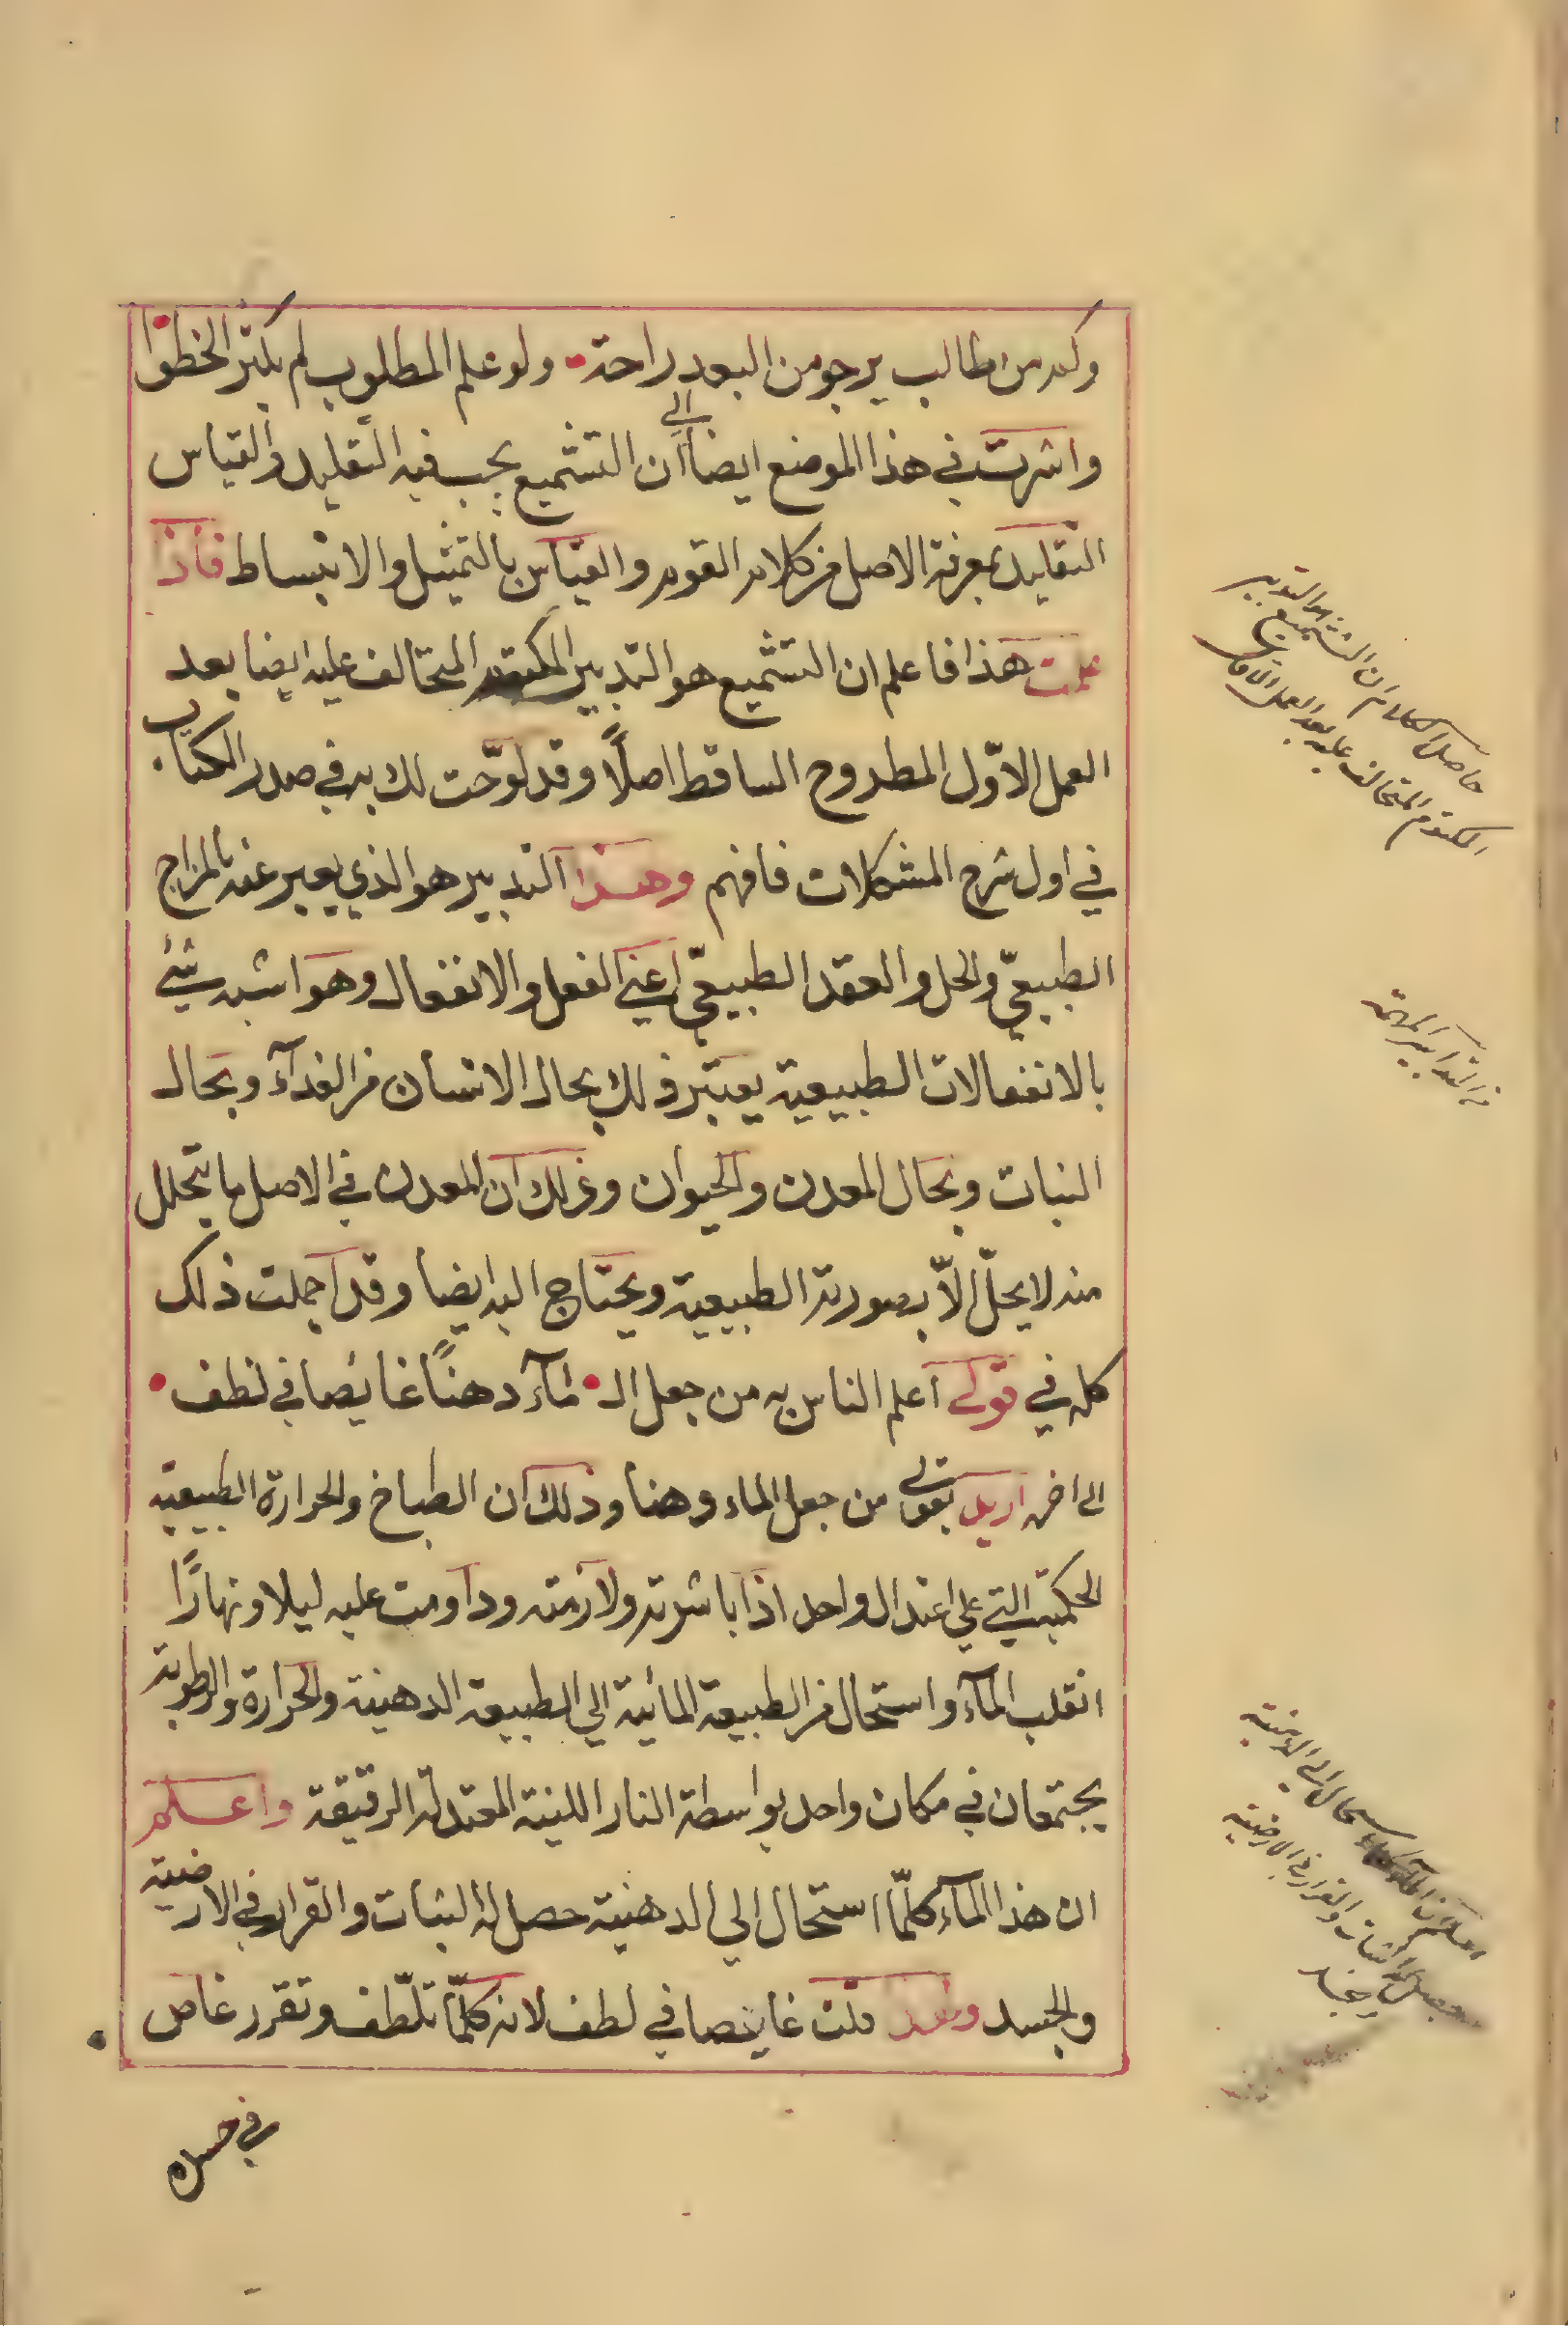 وكم من طالب يرجو من البعد راحة ولو علم المطلوب لم يكثر الخطوا
واشرت في هذا الموضع ايضا الى ان التشميع يجب فيه التقليد والقياس
التقليد بمعرفة الاصل من كلام القوم والقياس بالتمثيل والانبساط فاذا
علمت هذا فاعلم ان التشميع هو التدبير المكتوم المتحالف عليه ايضا بعد
العمل الاوّل المطروح الساقط اصلاً وقد لوّحت لك به في صدر الكتاب
في اول شرح المشكلات فافهم وهذا التدبير هو الذي يعبر عنه بالمزاج
الطبيعيّ والحل والعقد الطبيعيّ اعني الفعل والانفعال وهو اشبه شيئ
بالانفعالات الطبيعية يعتبر ذلك بحال الانسان من الغدآء وبحال
النبات وبحال المعدن والحيوان وذلك ان المعدن في الاصل ما يتحلل
منه لا يحلّ الاّ بصورته الطبيعية ويحتاج اليه ايضا وقد اجملت ذلك
كله في قولي اعلم الناس به من جعل الـ مآء دهناً غائصا في لطف
الى اخره اريد بقولي من جعل الماء دهنا وذلك ان الطباخ والحرارة الطبيعية
الحكمية التي على اعتدال واحد اذا باشرته ولازمته وداومت عليه ليلا ونهارًا
انقلب المآء واستحال من الطبيعة المائية الي الطبيعة الدهنية والحرارة والرطوبة
يجتمعان في مكان واحد بواسطة النار اللينة المعتدلة الرقيقة واعلم
ان هذا المآء كلّما استحال الي الدهنية حصل له الثبات والقرار في الارضية
والجسد وقد قلت غايصا في لطف لانه كلّما تلّطف وتقرر غاص
في جسده
حاصل الكلام ان التشميع هو التدبير
المكتوم المتحالف عليه بعد العمل الاول
من التدابير المهمة
اعلم ان المآء كلما استحال الي الدهنية
حصل له الثبات والقرار في الارضية